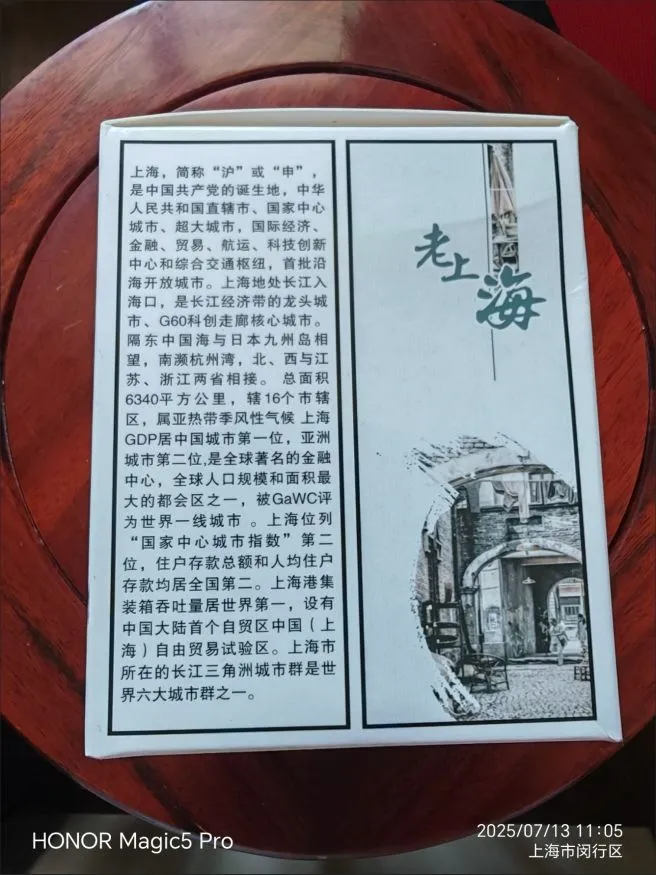 上海，简称“沪”或“申”，
是中国共产党的诞生地，中华
人民共和国直辖市、国家中心
城市、超大城市，国际经济、
金融、贸易、航运、科技创新
中心和综合交通枢纽，首批沿
海开放城市。上海地处长江入
海口，是长江经济带的龙头城
市、G60科创走廊核心城市。
隔东中国海与日本九州岛相
望，南濒杭州湾，北、西与江
苏、浙江两省相接。 总面积
6340平方公里，辖16个市辖
区，属亚热带季风性气候 上海
GDP居中国城市第一位，亚洲
城市第二位,是全球著名的金融
中心，全球人口规模和面积最
大的都会区之一，被GaWC评
为世界一线城市 。上海位列
“国家中心城市指数”第二
位，住户存款总额和人均住户
存款均居全国第二。上海港集
装箱吞吐量居世界第一，设有
中国大陆首个自贸区中国（上
海）自由贸易试验区。上海市
所在的长江三角洲城市群是世
界六大城市群之一。
老上海
HONOR Magic5 Pro
2025/07/13 11:05
上海市闵行区